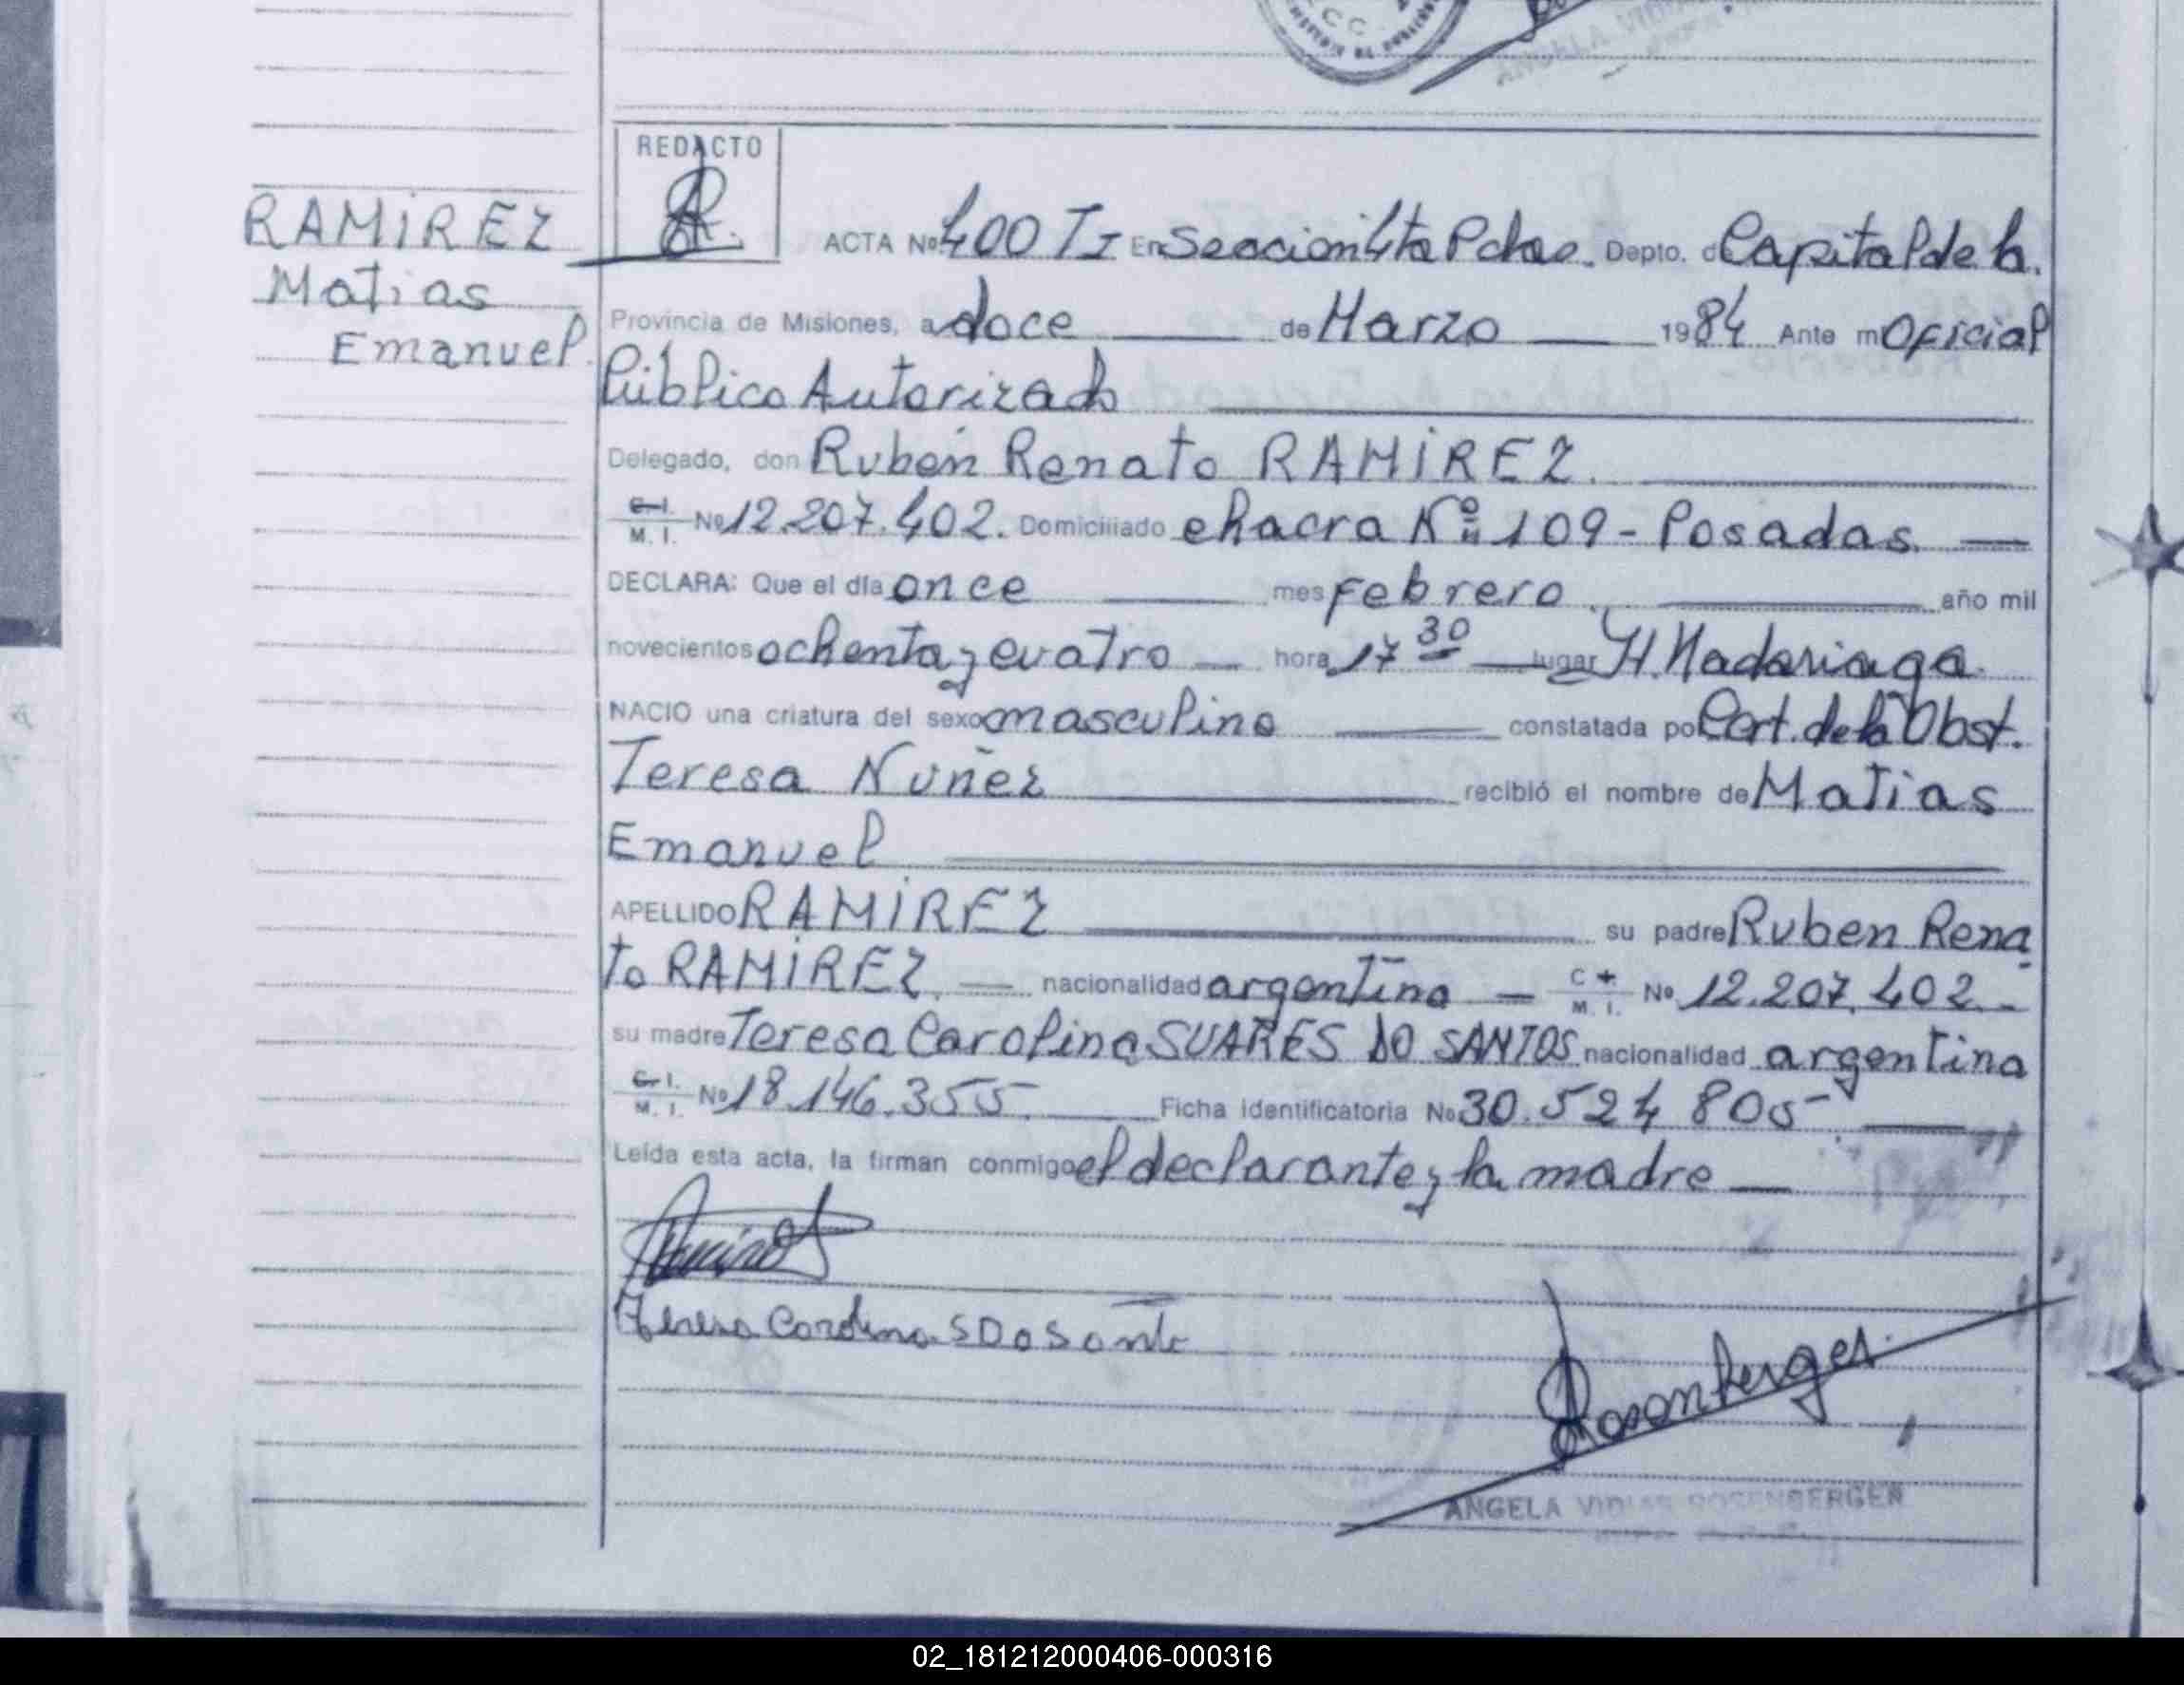 REDACTO
RAMIREZ
Matias
Emanuel
ACTA Nº 400 TI En Seccion 4ta Pdas. Depto. d Capital de la
Provincia de Misiones, a doce de Marzo 1984 Ante m Oficial
Público Autorizado
Delegado, don Rubén Renato RAMIREZ.
C. I. M. I. Nº 12.207.402. Domiciliado chacra Nº 109 - Posadas.
DECLARA: Que el día once mes febrero año mil
novecientos ochenta y cuatro hora 17 30 lugar H. Madariaga
NACIO una criatura del sexo masculino constatada po Cert. de la Obst.
Teresa Nuñez recibió el nombre de Matias
Emanuel
APELLIDO RAMIREZ su padre Ruben Rena
to RAMIREZ. nacionalidad argentina C. I. M. I. Nº 12.207.402.
su madre Teresa Carolina SUARES DO SANTOS nacionalidad argentina
C. I. M. I. Nº 18.146.355. Ficha identificatoria Nº 30.524 805
Leída esta acta, la firman conmigo el declarante y la madre
Teresa Carolina S Do Santo
Rosenberger
ANGELA VIDIAS ROSENBERGER
02_181212000406-000316